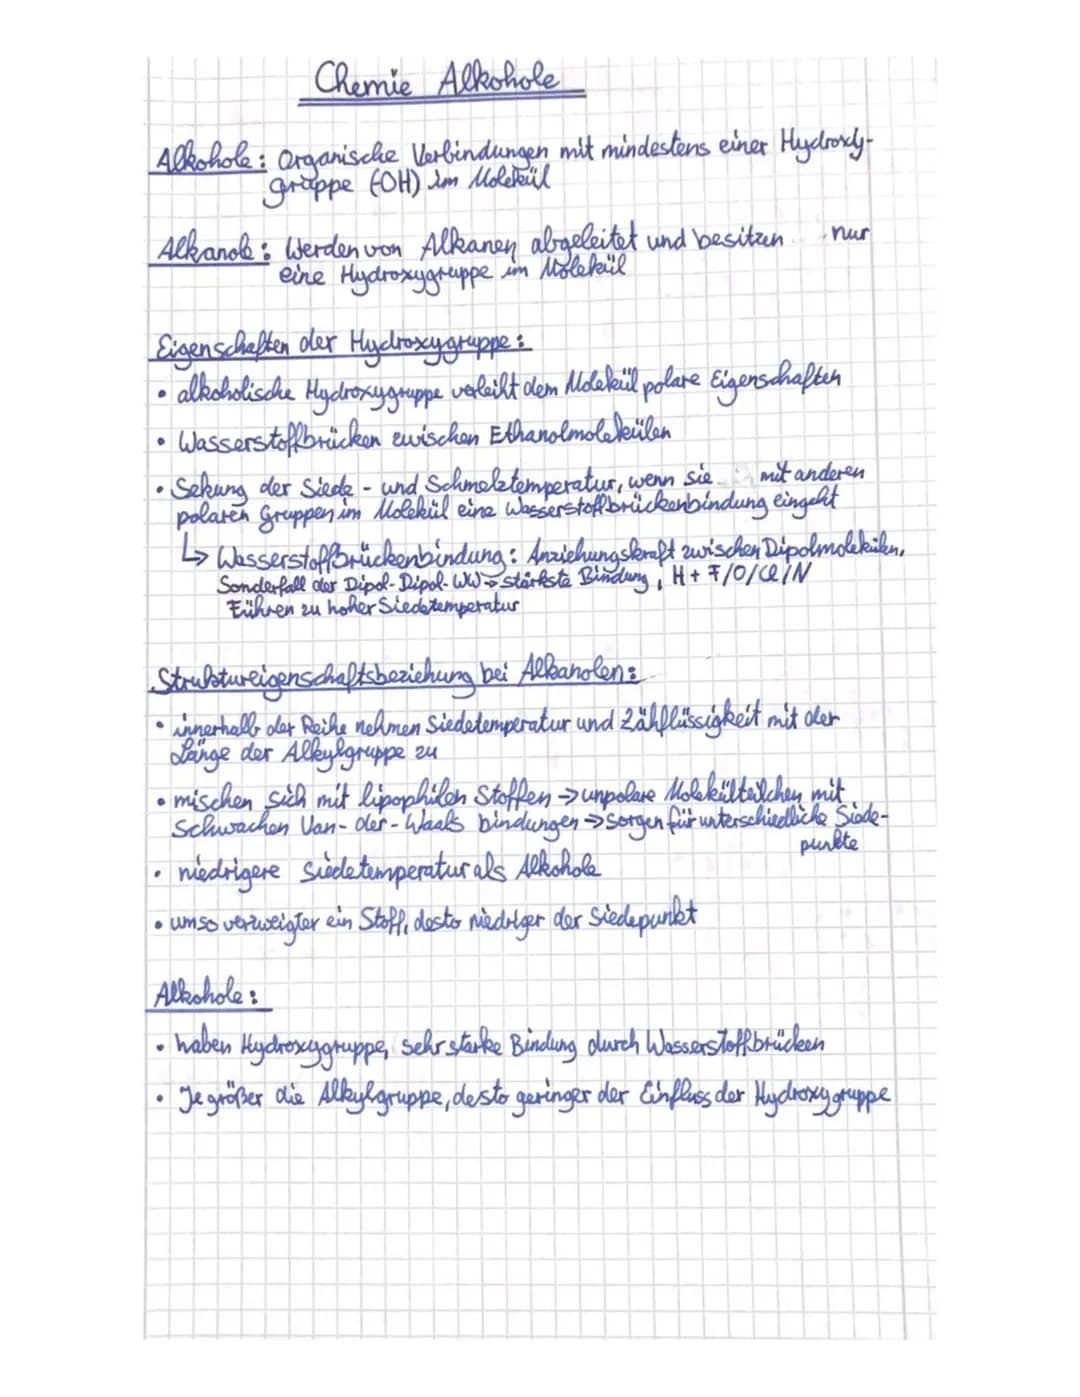 Chemie Alkohole
Alkohole: Organische Verbindungen mit mindestens einer Hydroxy-
gruppe (-OH) im Molekül
Alkanole: Werden von Alkanen abgeleitet und besitzen nur
eine Hydroxygruppe im Molekül
Eigenschaften der Hydroxygruppe:
• alkoholische Hydroxygruppe verleiht dem Molekül polare Eigenschaften
• Wasserstoffbrücken zwischen Ethanolmolekülen
• Sekung der Siede- und Schmelztemperatur, wenn sie mit anderen
polaren Gruppen im Molekül eine Wasserstoffbrückenbindung eingeht
↳ Wasserstoffbrückenbindung: Anziehungskraft zwischen Dipolmolekülen,
Sonderfall der Dipol-Dipol-WW → stärkste Bindung, H + F/O/Cl/N
Führen zu hoher Siedetemperatur
Struktureigenschaftsbeziehung bei Alkanolen:
• innerhalb der Reihe nehmen Siedetemperatur und Zähflüssigkeit mit der
Länge der Alkylgruppe zu
• mischen sich mit lipophilen Stoffen → unpolare Molekülteilchen mit
schwachen Van-der-Waals bindungen → sorgen für unterschiedliche Siede-
punkte
• niedrigere Siedetemperatur als Alkohole
• umso verzweigter ein Stoff, desto niedriger der Siedepunkt
Alkohole:
• haben Hydroxygruppe, sehr starke Bindung durch Wasserstoffbrücken
• Je größer die Alkylgruppe, desto geringer der Einfluss der Hydroxygruppe